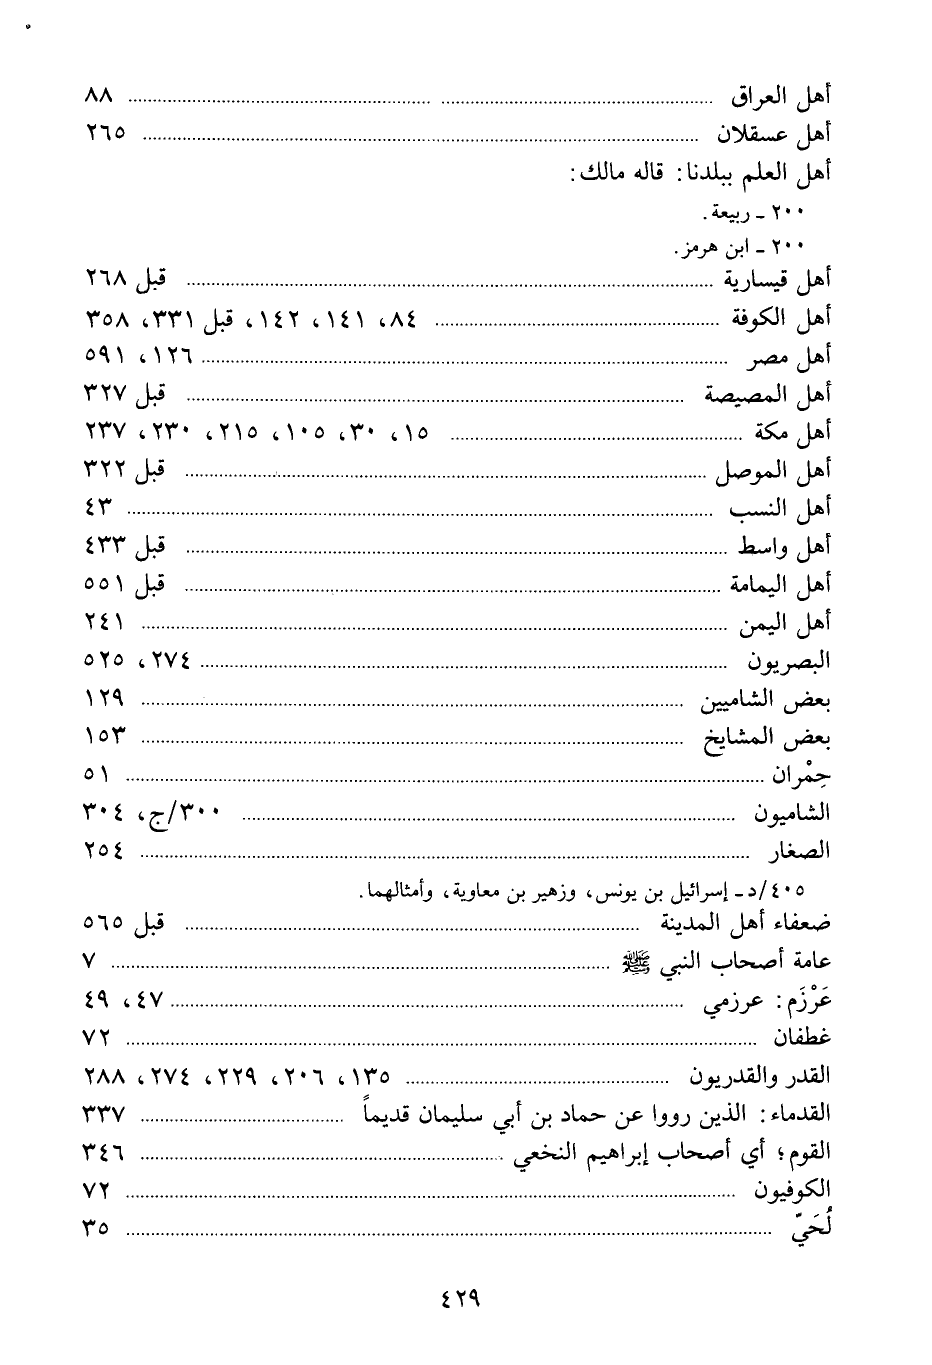 أهل العراق ........ ٨٨
أهل عسقلان ........ ٢٦٥
أهل العلم ببلدنا: قاله مالك:
٢٠٠ ـ ربيعة.
٢٠٠ ـ ابن هرمز.
أهل قيسارية ........ قبل ٢٦٨
أهل الكوفة ........ ٨٤، ١٤١، ١٤٢، قبل ٣٣١، ٣٥٨
أهل مصر ........ ١٢٦، ٥٩١
أهل المصيصة ........ قبل ٣٢٧
أهل مكة ........ ١٥، ٣٠، ١٠٥، ٢١٥، ٢٣٠، ٢٣٧
أهل الموصل ........ قبل ٣٢٢
أهل النسب ........ ٤٣
أهل واسط ........ قبل ٤٣٣
أهل اليمامة ........ قبل ٥٥١
أهل اليمن ........ ٢٤١
البصريون ........ ٢٧٤، ٥٢٥
بعض الشاميين ........ ١٢٩
بعض المشايخ ........ ١٥٣
حِمْران ........ ٥١
الشاميون ........ ٣٠٠/ج، ٣٠٤
الصغار ........ ٢٥٤
٤٠٥/د ـ إسرائيل بن يونس، وزهير بن معاوية، وأمثالهما.
ضعفاء أهل المدينة ........ قبل ٥٦٥
عامة أصحاب النبي ﷺ ........ ٧
عَرْزَم: عرزمي ........ ٤٧، ٤٩
غطفان ........ ٧٢
القدر والقدريون ........ ١٣٥، ٢٠٦، ٢٢٩، ٢٧٤، ٢٨٨
القدماء: الذين رووا عن حماد بن أبي سليمان قديماً ........ ٣٣٧
القوم؛ أي أصحاب إبراهيم النخعي ........ ٣٤٦
الكوفيون ........ ٧٢
لُحَيّ ........ ٣٥
٤٢٩